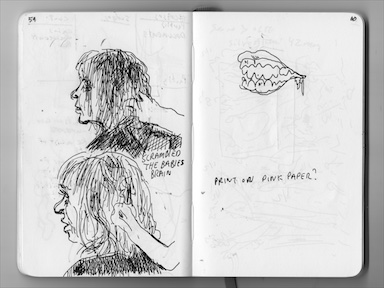 59
SCRAMBLED
THE BABIES
BRAIN
60
PRINT ON PINK PAPER?